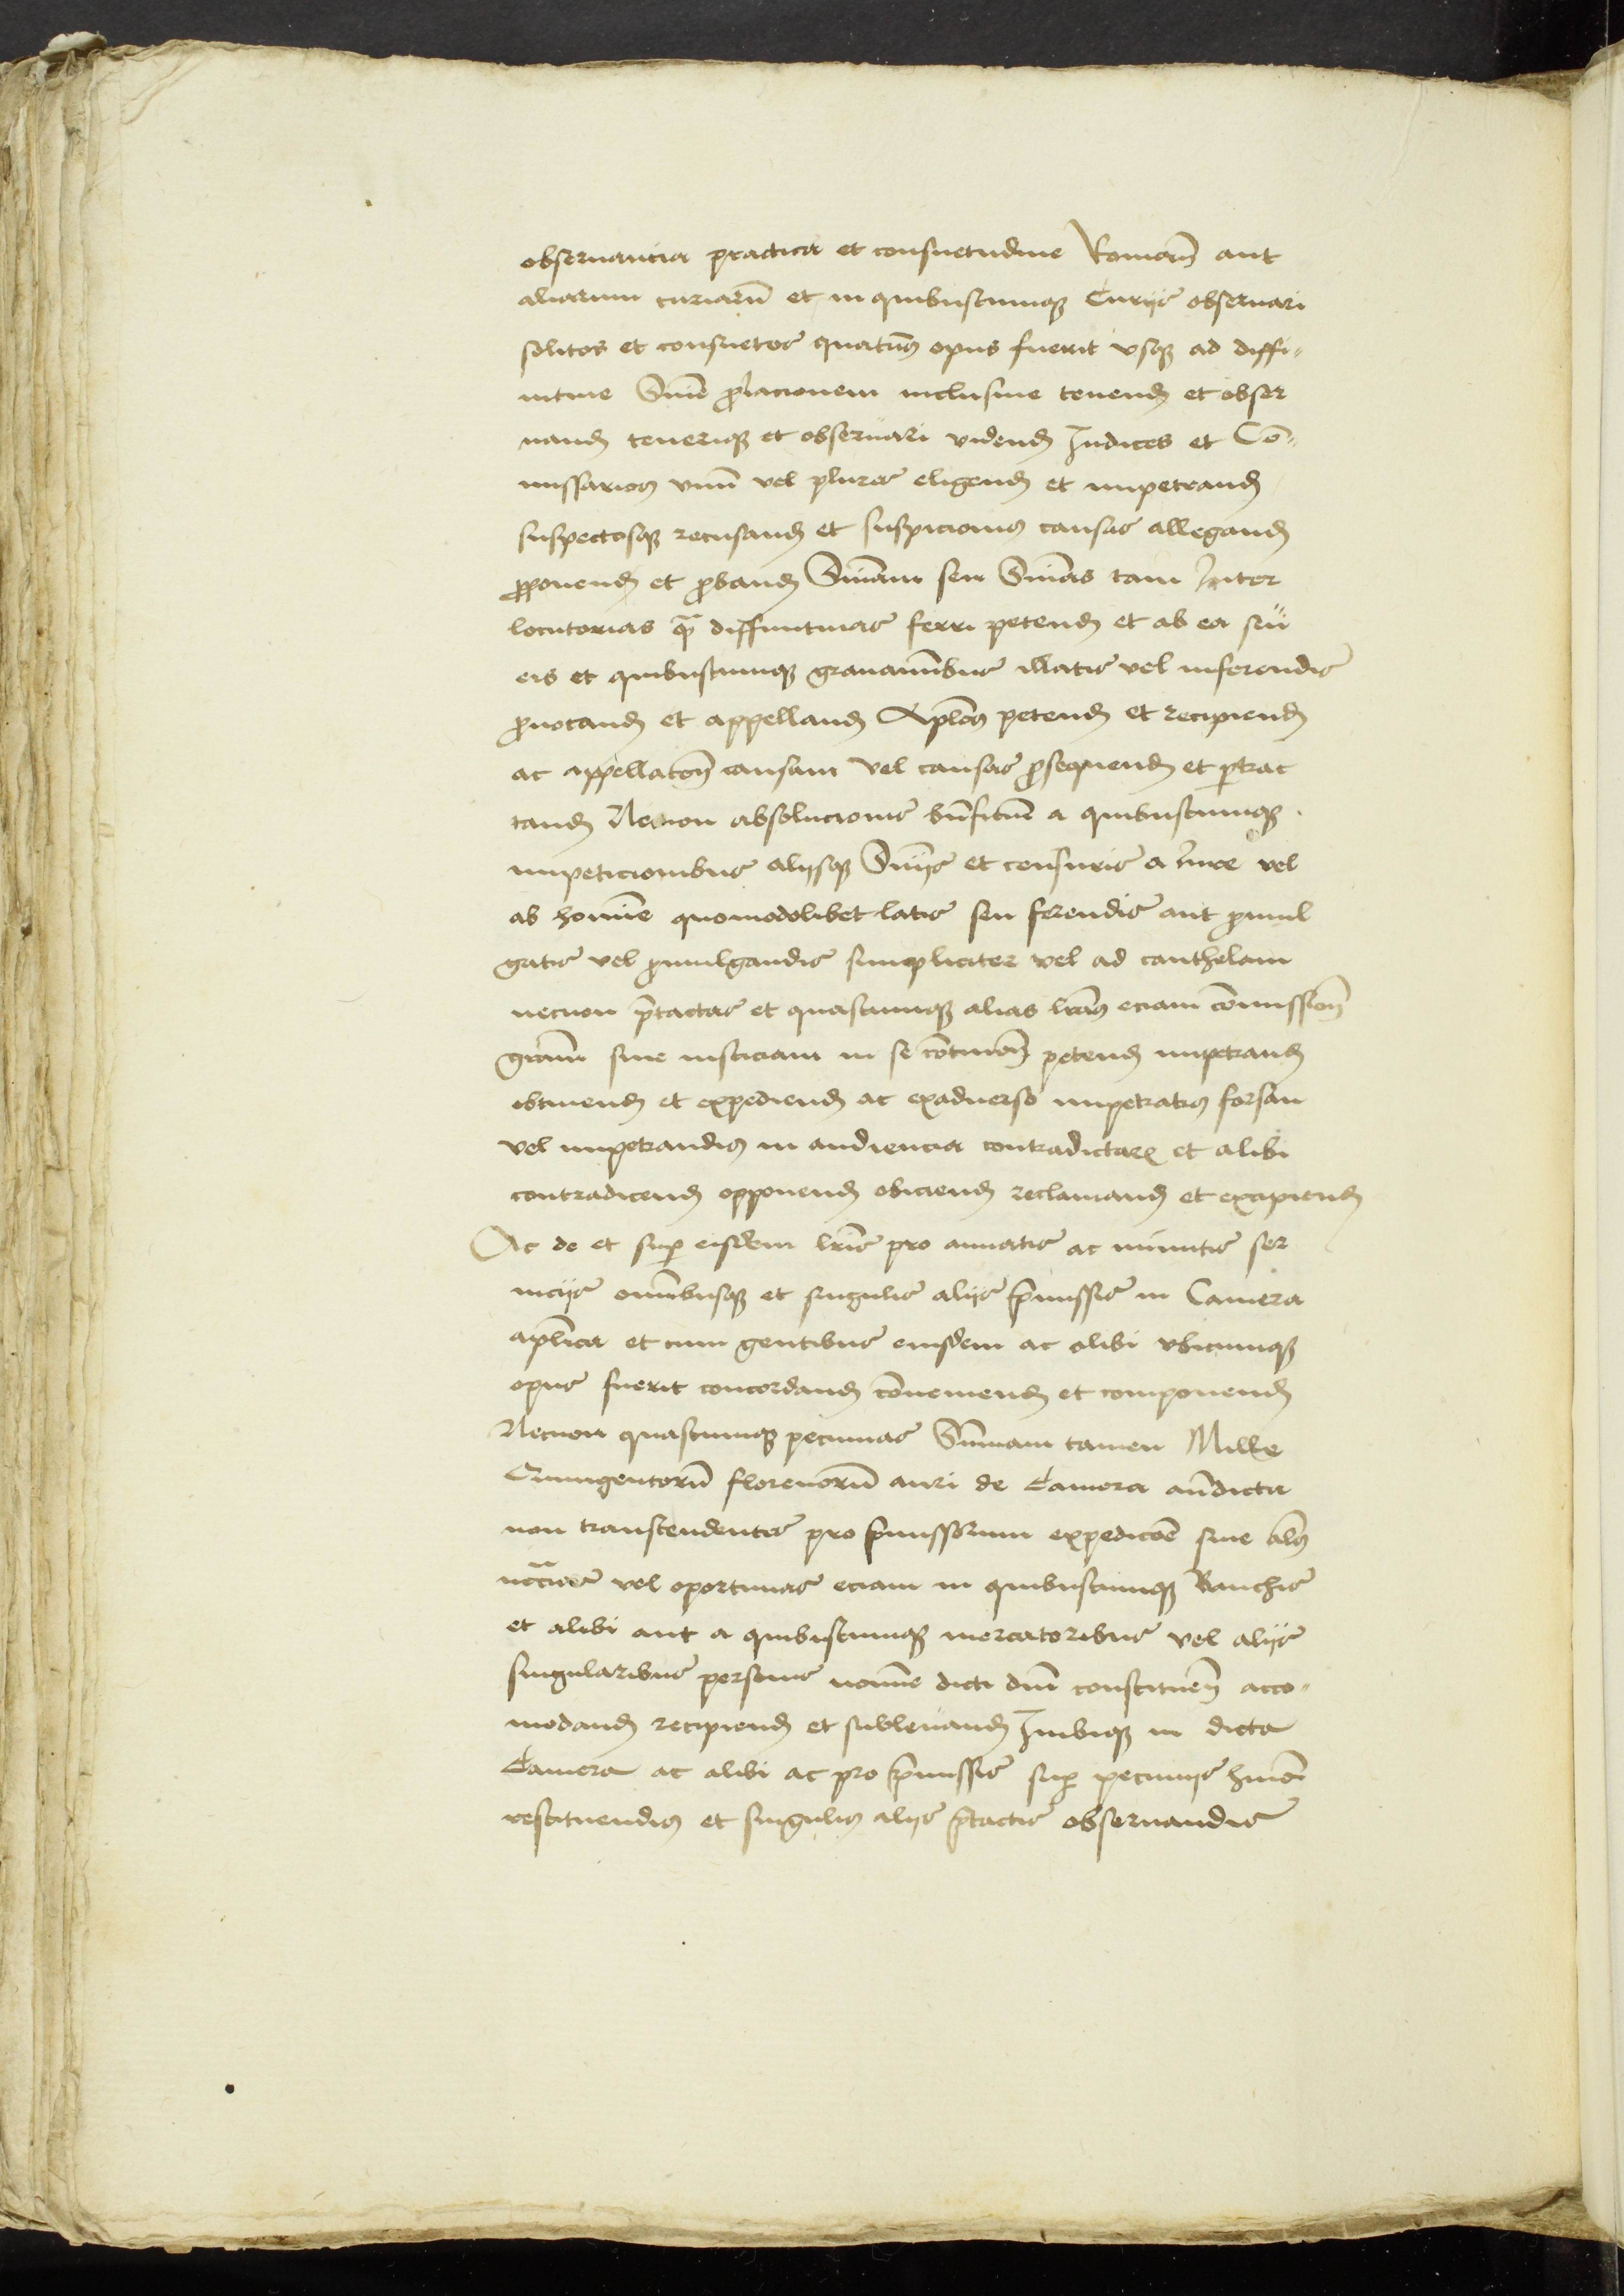 obseruancia practica et consuetudine Romañ aut
aliarum curiarũ et in quibuscumqꝫ Curijs obseruari
solitos et consuetos quatinꝰ opus fuerit vsqꝫ ad diffi-
nitiue Snīe ꝓlacionem inclusiue tenend et obser
uand teneriqꝫ et obseruari vidend Iudices et Cō-
missarios vnū vel plures eligend et impetrand
suspectosqꝫ recusand et suspicionis causas allegand
ꝓponend et ꝓband Snīam seu Snīas tam Inter
locutorias qᷓ diffinitiuas ferri petend et ab ea seu
eis et quibuscumqꝫ grauamībus illatis vel inferendis
ꝓuocand et appelland Apl̄os petend et recipiend
ac appellatoñ causam vel causas ꝓsequend et ꝑtrac
tand Necnon absolucionis bn̄ficiū a quibuscumqꝫ
impeticionibus alijsqꝫ Snījs et censuris a iure vel
ab homīe quomodolibet latis seu ferendis aut ꝓmul
gatis vel ꝓmulgandis simpliciter vel ad cauthelam
necnon p̄tactas et quascumqꝫ alias lr̄as eciam cōmissioñ
gr̄am siue iusticiam in se cōtineñ petend impetrand
obtinend et expediend ac exaduerso impetratis forsan
vel impetrandis in audiencia contradictaꝝ et alibi
contradicend opponend obiciend reclamand et excipiend
Ac de et suꝑ eisdem lr̄is pro annatis ac minutis ser
uicijs omībusqꝫ et singulis alijs p̄missis in Camera
apl̄ica et cum gentibus eiusdem ac alibi vbicumqꝫ
opus fuerit concordand cōueniend et componend
Necnon quascumqꝫ pecunias Sūmam tamen Mille
Quingentorū florenorū auri de Camera an̄dicta
non transcendentes pro p̄missorum expedicōe siue al̄s
nc̄cias vel oportunas eciam in quibuscumqꝫ Banchis
et alibi aut a quibuscumqꝫ mercatoribus vel alijs
singularibus personis nomīe dicti dn̄i constitueñ acco-
modand recipiend et subleuand Inibiqꝫ in dicta
Camera ac alibi ac pro p̄missis suꝑ pecunijs hmōi
restituendis et singulis alijs p̄tactis obseruandis